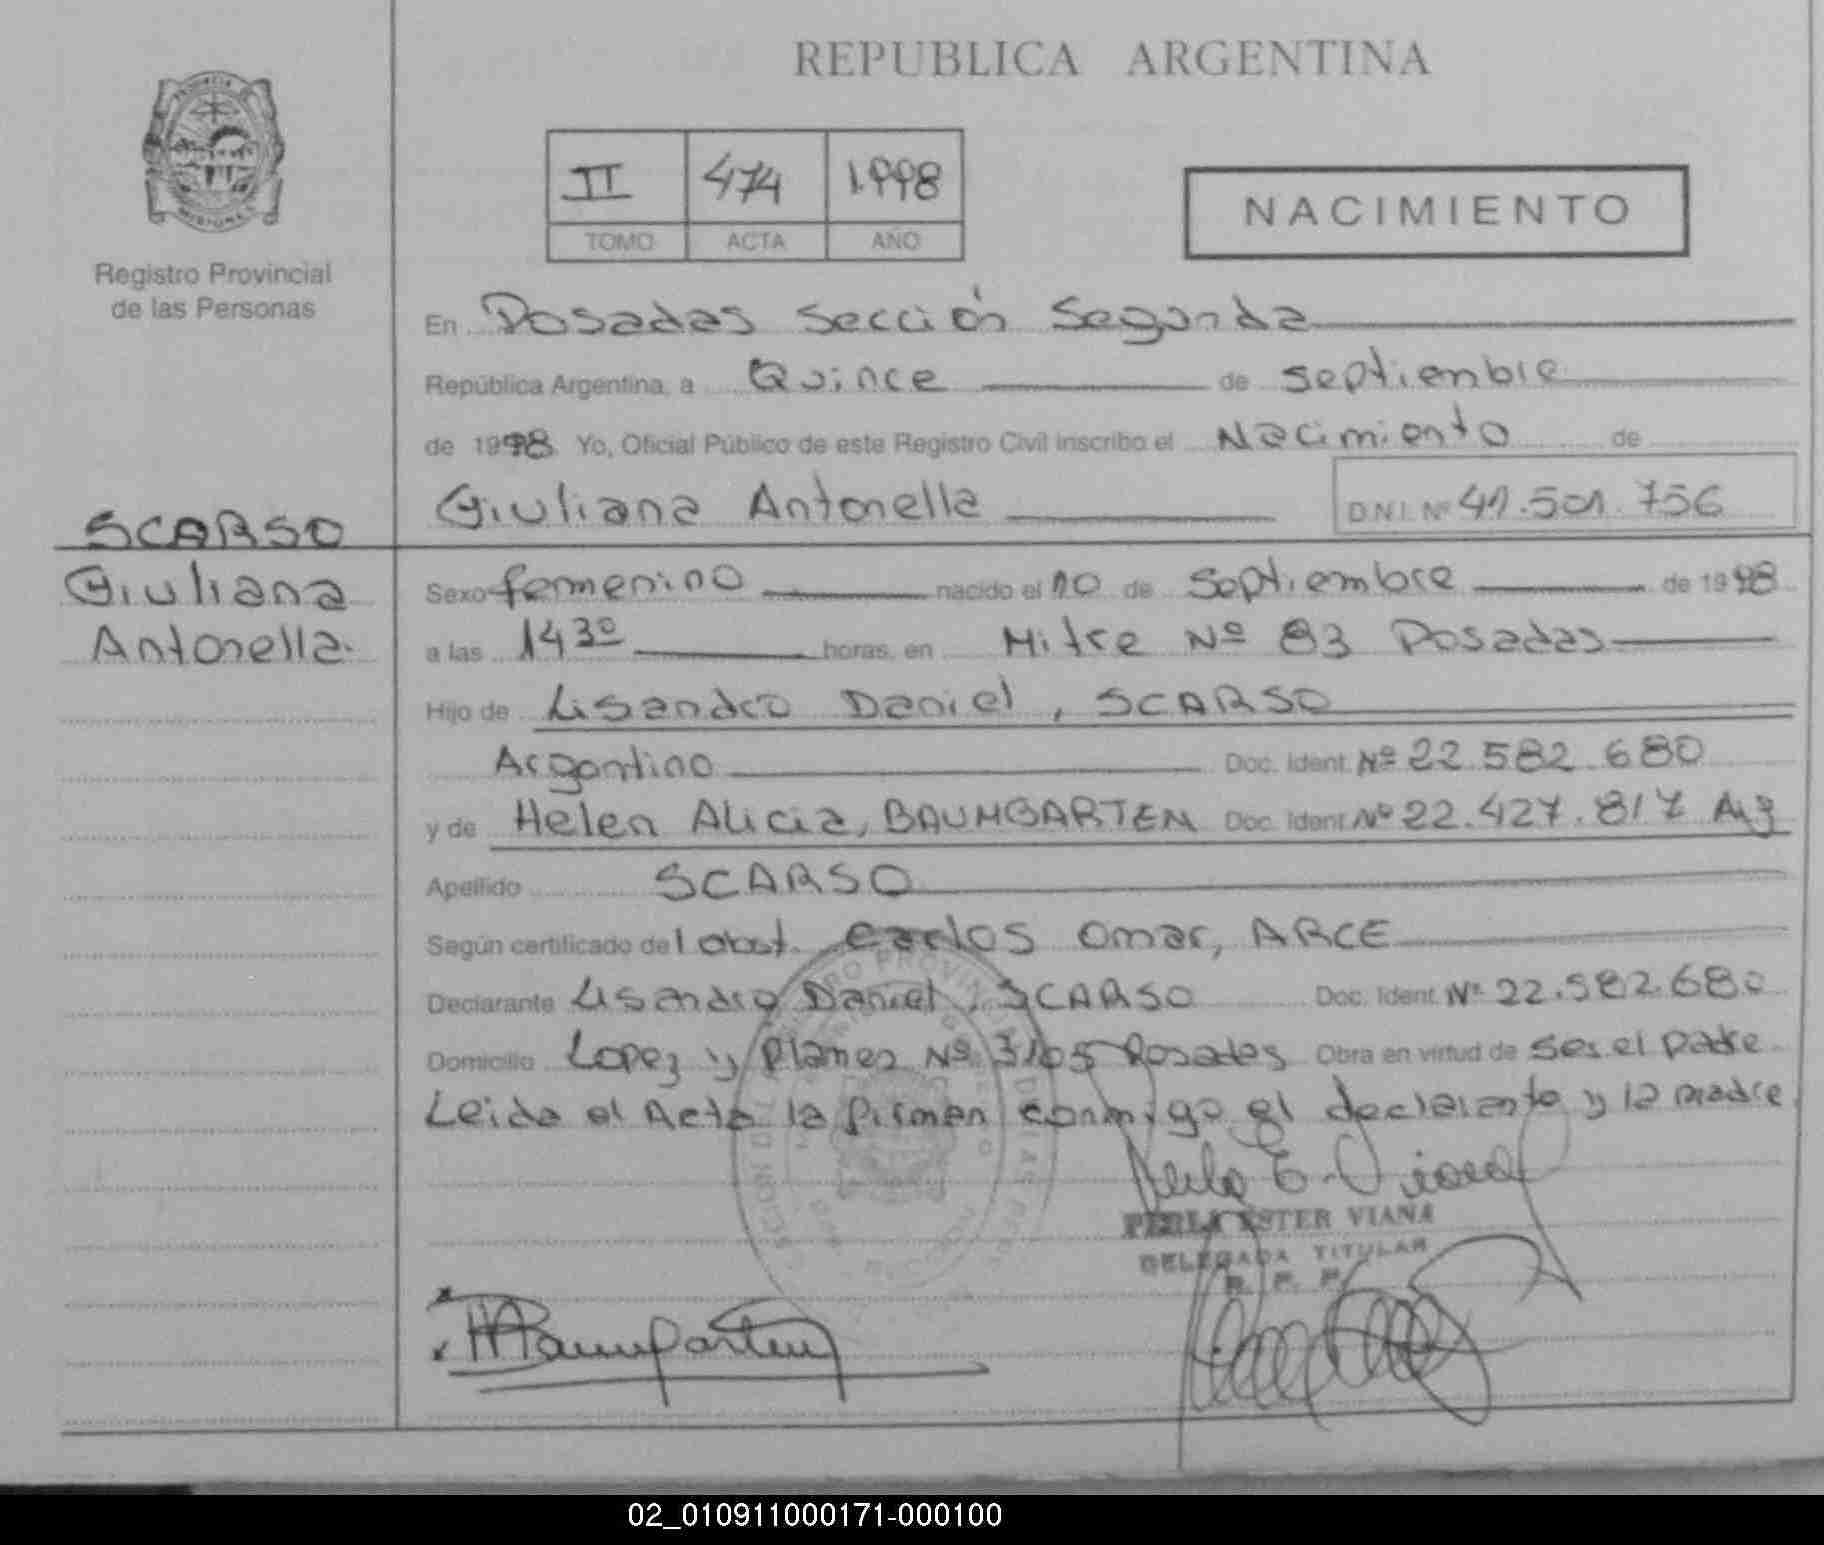 REPUBLICA ARGENTINA
II 474 1998
TOMO ACTA AÑO
NACIMIENTO
Registro Provincial
de las Personas
En Posadas Sección Segunda
República Argentina, a Quince de septiembre
de 1998 Yo, Oficial Público de este Registro Civil inscribo el Nacimiento de
Giuliana Antonella D.N.I. Nº 41.501.756
SCARSO
Giuliana
Antonella.
Sexo femenino nacido el 10 de Septiembre de 1998
a las 14 30 horas, en Mitre Nº 83 Posadas
Hijo de Lisandro Daniel, SCARSO
Argentino Doc. Ident. Nº 22.582.680
y de Helen Alicia, BAUMGARTEN Doc. Ident. Nº 22.427.817 Arg
Apellido SCARSO
Según certificado del obst. Carlos Omar, ARCE
Declarante Lisandro Daniel, SCARSO Doc. Ident. Nº 22.582.680
Domicilio Lopez y Planes Nº 3105 Posadas Obra en virtud de ser el padre
Leida el Acta la firman conmigo el declarante y la madre
PERLA ESTER VIANA
DELEGADA TITULAR
R. P. P.
HABaumgarten
02_010911000171-000100